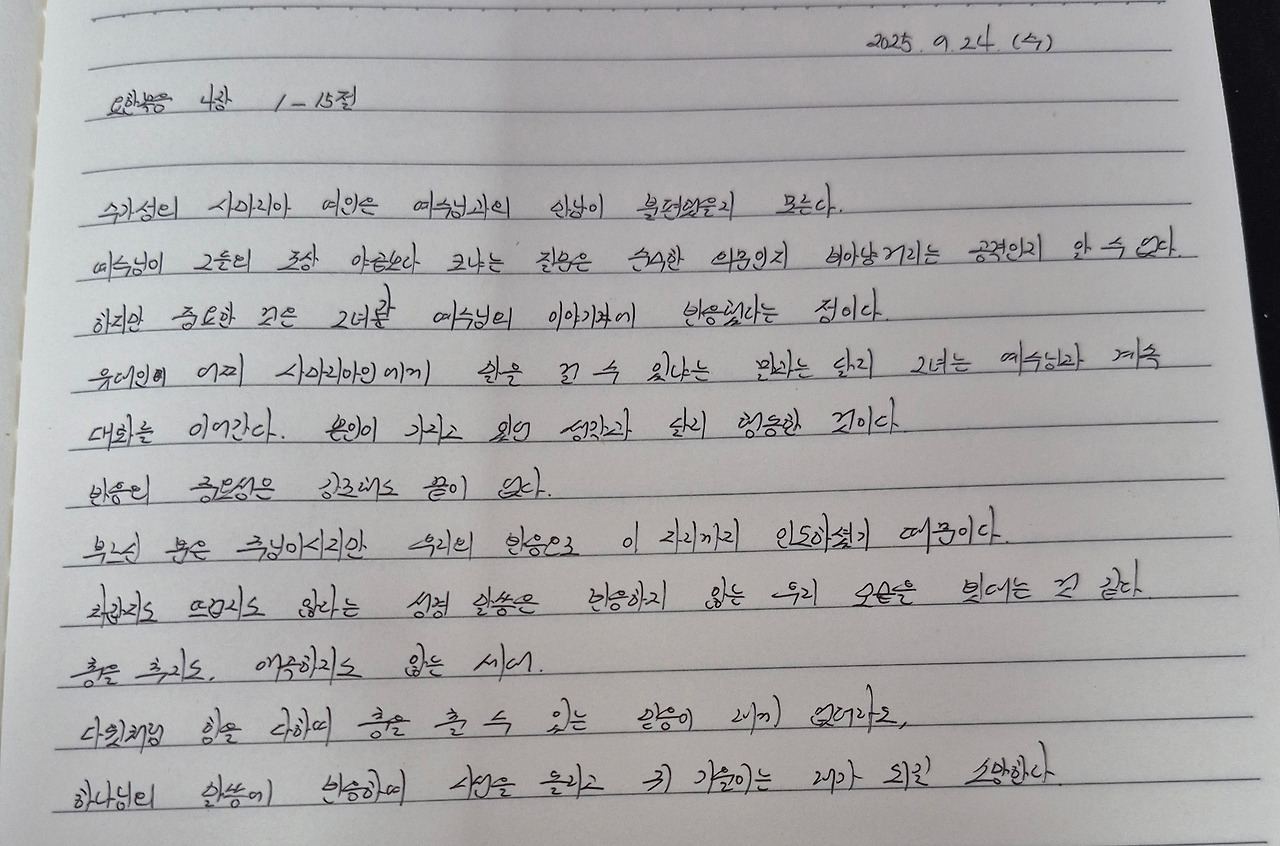 2025. 9. 24. (수)
요한복음 4장 1-15절
수가성의 사마리아 여인은 예수님과의 만남이 불편했을지 모른다.
예수님이 그들의 조상 야곱보다 크냐는 질문은 순수한 의문인지 비아냥거리는 공격인지 알 수 없다.
하지만 중요한 것은 그녀가 예수님의 이야기에 반응했다는 점이다.
유대인이 어찌 사마리아인에게 말을 걸 수 있냐는 말과는 달리 그녀는 예수님과 계속
대화를 이어간다. 본인이 가지고 있던 생각과 달리 행동한 것이다.
반응의 중요성은 강조해도 끝이 없다.
부르신 분은 주님이시지만 우리의 반응으로 이 자리까지 인도하셨기 때문이다.
차갑지도 뜨겁지도 않다는 성경 말씀은 반응하지 않는 우리 모습을 빗대는 것 같다.
춤을 추지도, 애곡하지도 않는 세대.
다윗처럼 힘을 다하여 춤을 출 수 있는 믿음이 내게 없더라도,
하나님의 말씀에 반응하여 시선을 돌리고 귀 기울이는 내가 되길 소망한다.